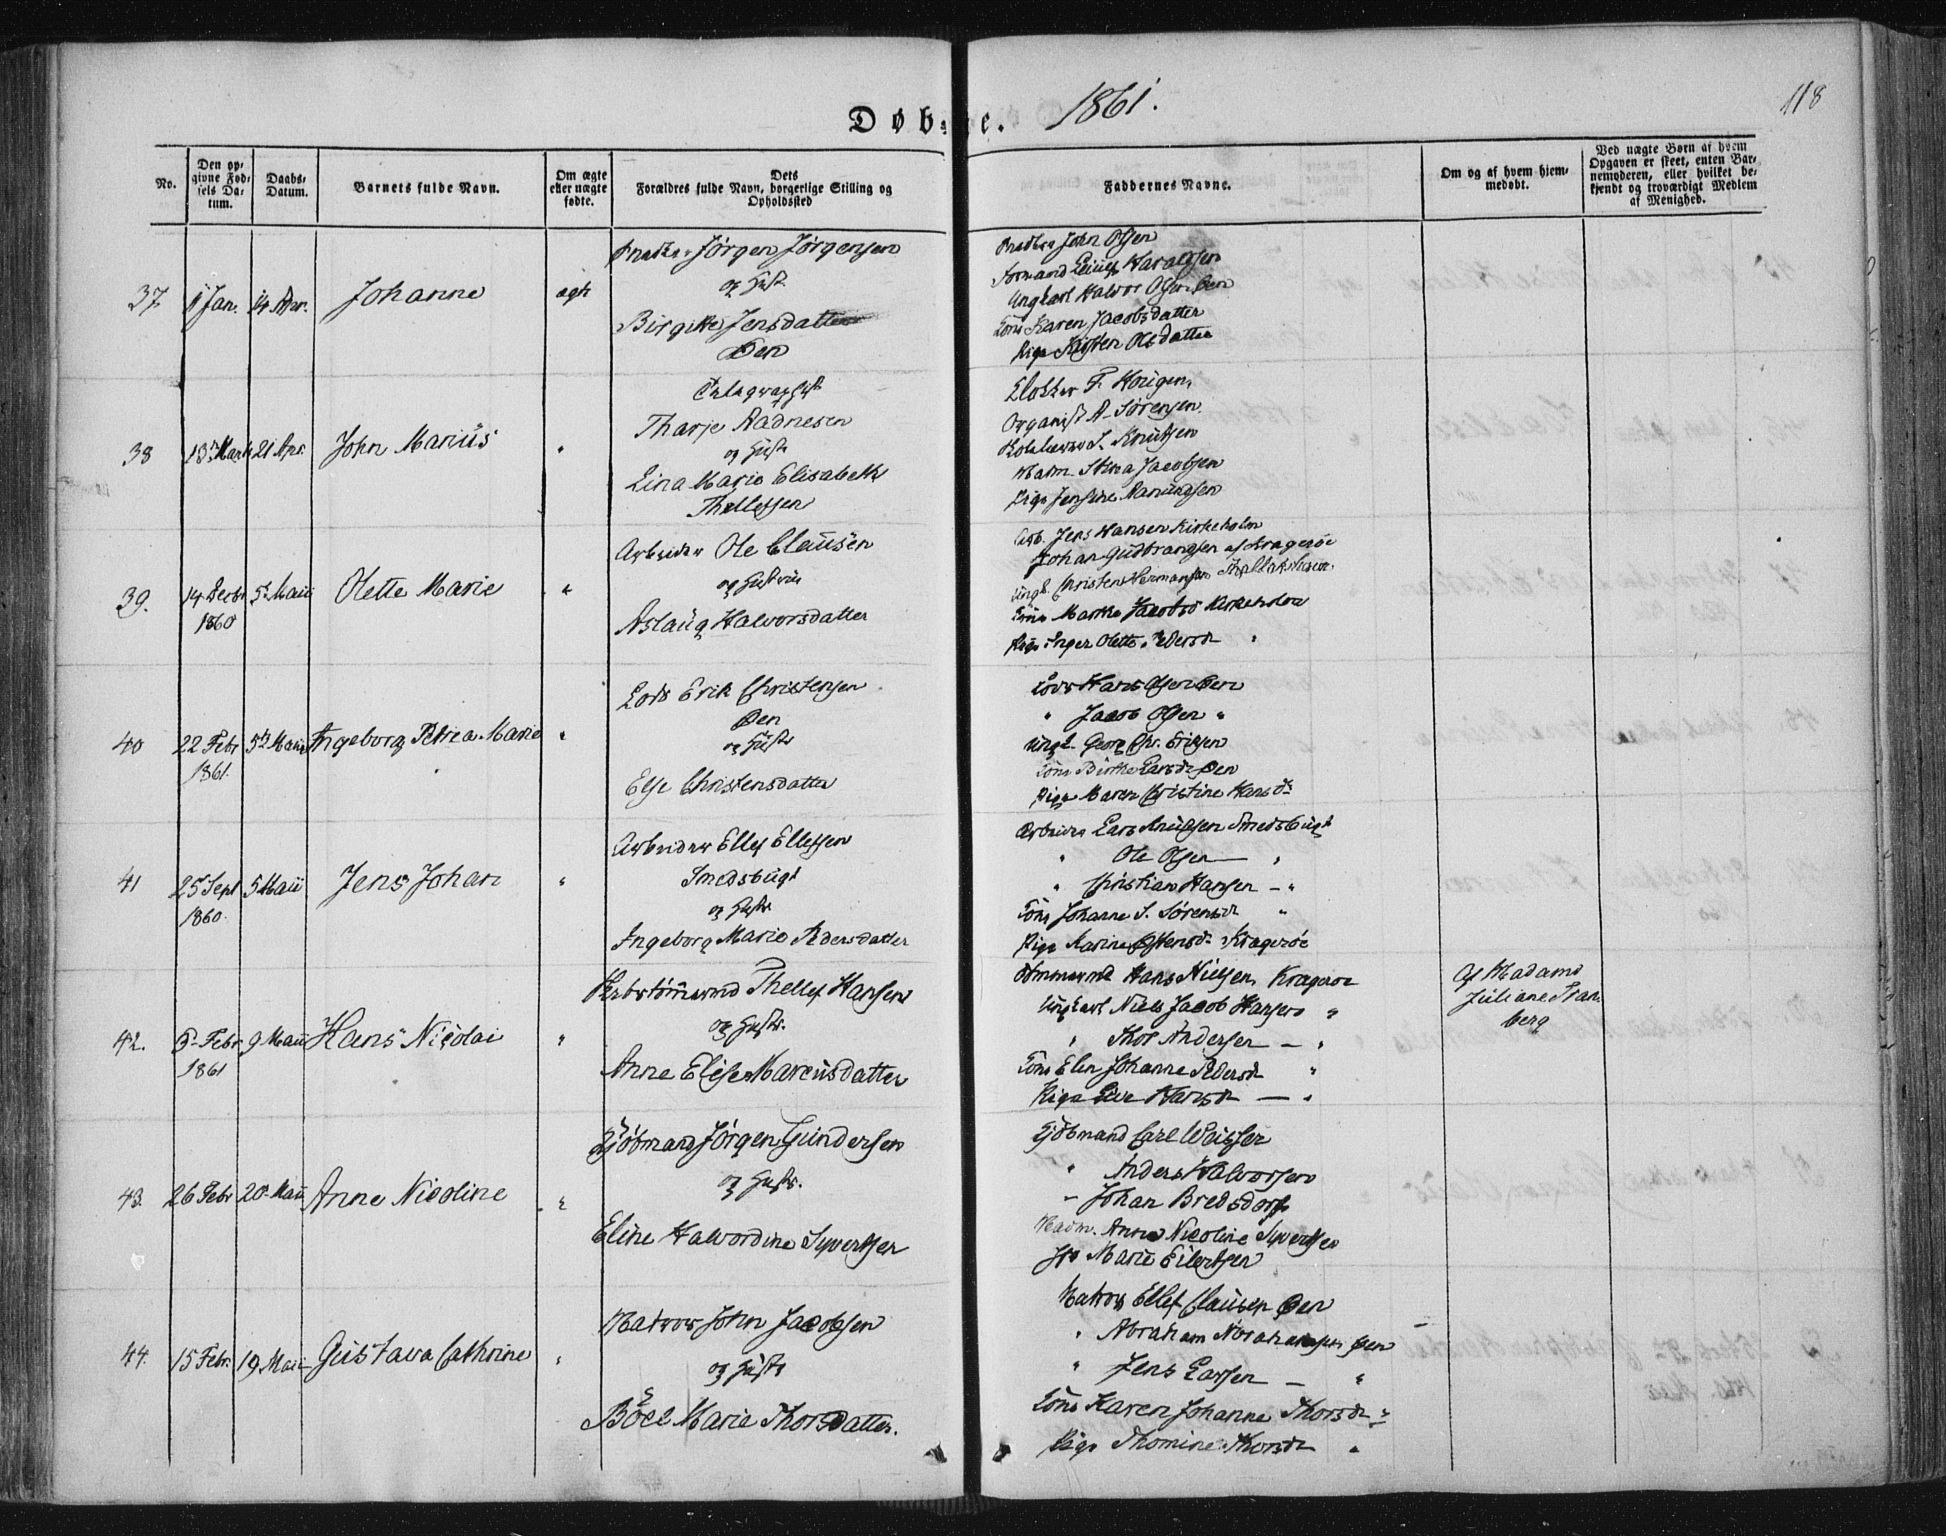 1861.
118
Døbte.
No.
Den opgivne Fødsels Datum.
Daabs-Datum.
Barnets fulde Navn.
Om ægte eller uægte fødte.
Dets Forældres fulde Navn, borgerlige Stilling og Opholdssted
Faddernes Navne.
Om og af hvem hjemmedøbt.
Ved uægte Børn af hvem Opgaven er skeet, enten Barnemoderen, eller hvilket bekjendt og troværdigt Medlem af Menighed.
37 Jan. 14 Apr. Johanne ægte
Jørgen Jørgensen
og Hust.
Birgitte Jensdatter
Øen
John Olsen
Haraldsen
Ungkarl Halvor Olsen Øen
Kone Karen Jacobsdatter
Pige Kirsten Olsdatter
38 13 Marts 21 Apr. John Marius "
Telegraphist
Tharje Aadnesen
og Hustr
Lina Marie Elisabeth
Thellefsen
Klokker F. Horigen
Organist A. Sørensen
S. Knutsen
Madm. Jacobsen
Pige Jensine
39. 14 Decbr 1860 5 Maii Olette Marie "
Arbeider Ole Clausen
og Hustru
Aslaug Halvorsdatter
Arb. Jens Hansen Kirkeholm
Johan Gudbrandsen af Kragerøe
Ungk. Christen Hermansen
Kone Marthe Jacobsd Kirkeholm
Pige Inger Olette Pedersd "
40 22 Febr 1861. 5te Maii Ingeborg Petrea Marie "
Lods Erik Christensen
Øen
og Hustr
Else Christensdatter
Lods Hans Olsen Øen
" Jacob Olsen "
Ungk. Georg Chr. Eriksen
Kone Birthe Larsd Øen
Pige Maren Christine Hansdr
41 25 Sept 1860. 5 Maii Jens Johan "
Arbeider Ellef Ellefsen
Smedsbugt
og Hustr
Ingeborg Marie Pedersdatter
Arbeider Lars Knudsen Smedsbugt
" Ole Olsen — "
" Christian Hansen — "
Kone Johanne S. Sørensd "
Pige Karine Kragerøe
42. 6 Febr 1861 9 Maii Hans Nicolai "
Thellef Hansen
og Hustr.
Anne Elise Marcusdatter
Tømmermd Hans Nielsen Kragerøe
Ungkarl Niels Jacob Hansen "
" Thor Andersen — "
Kone Elen Johanne Pedersd "
Pige Hansd — "
Af Madame
Juliane
berg
43. 26 Febr 20 Maii Anne Nicoline "
Kjøbmand Jørgen Gundersen
og Hustr.
Eline Halvordine Syvertsen
Kjøbmand Carl Weisser
" Anders Halvorsen
" Johan Bredsdorff
Madm. Anne Nicoline Syvertsen
Marie Eilertsen
44. 15 Febr. 19 Maii Gustava Cathrine "
Matros John Jacobsen
og Hustr
Böel Marie Thorsdatter.
Matros Ellef Clausen Øen
" Abraham Øen
" Jens Larsen — "
Kone Karen Johanne Thorsd "
Pige Thomine Thorsd "